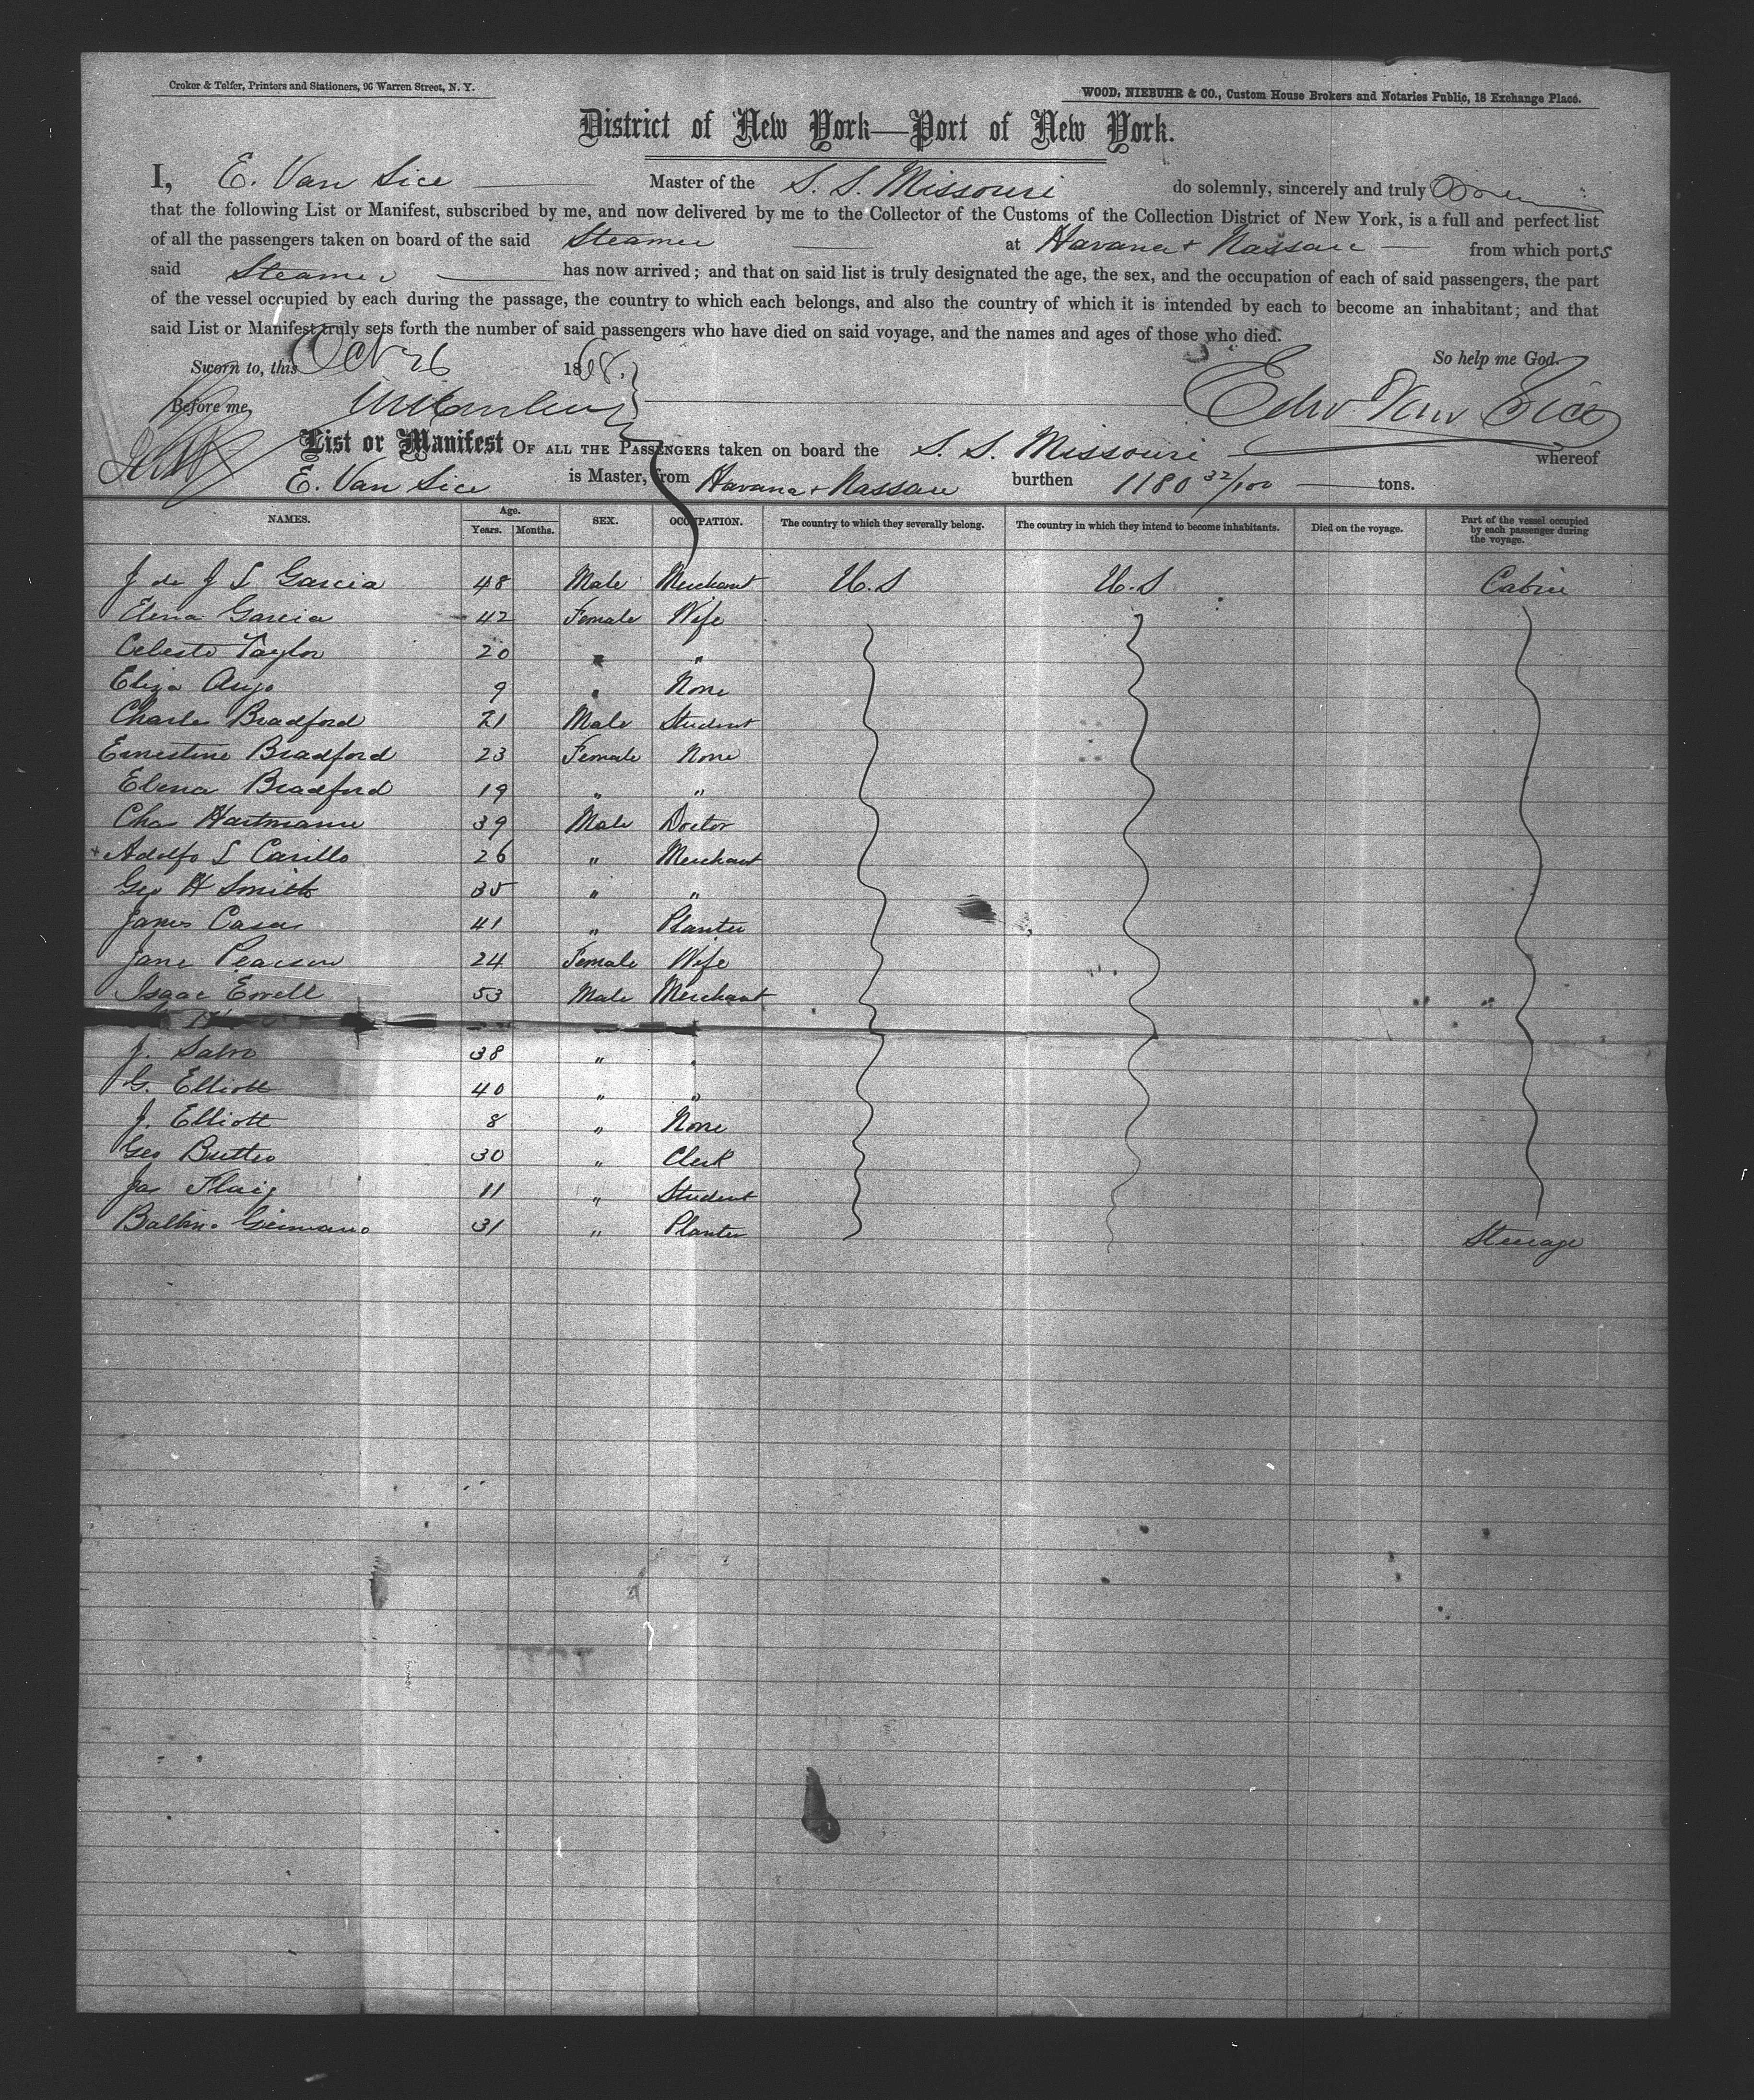 Croker & Telfer, Printers and Stationers, 96 Warren Street, N. Y.
WOOD, NIEBUHR & CO., Custom House Brokers and Notaries Public, 18 Exchange Place.
District of New York—Port of New York.
I, E. Van Sice Master of the S. S. Missouri do solemnly, sincerely and truly
that the following List or Manifest, subscribed by me, and now delivered by me to the Collector of the Customs of the Collection District of New York, is a full and perfect list
of all the passengers taken on board of the said Steamer at Havana + Nassau from which ports
said Steamer has now arrived; and that on said list is truly designated the age, the sex, and the occupation of each of said passengers, the part
of the vessel occupied by each during the passage, the country to which each belongs, and also the country of which it is intended by each to become an inhabitant; and that
said List or Manifest truly sets forth the number of said passengers who have died on said voyage, and the names and ages of those who died.
So help me God.
Sworn to, this Oct 26 1868.
Before me,
Edw Van Sice
List or Manifest OF ALL THE PASSENGERS taken on board the S. S. Missouri whereof
E. Van Sice is Master, from Havana + Nassau burthen 1180 32/100 tons.
NAMES. Age. Years. Months. SEX. OCCUPATION. The country to which they severally belong. The country in which they intend to become inhabitants. Died on the voyage. Part of the vessel occupied by each passenger during the voyage.
J de J L Garcia 48 Male Merchant U.S U.S Cabin
Elena Garcia 42 Female Wife
Celeste Taylor 20 " "
Eliza 9 " None
Charles Bradford 21 Male Student
Ernestine Bradford 23 Female None
Elena Bradford 19 " "
Chas Hartmann 39 Male Doctor
+ Adolfo L Carillo 26 " Merchant
Geo H Smith 35 " "
James Casa 41 " Planter
Jane Pearson 24 Female Wife
Isaac Errell 53 Male Merchant
J. Salvo 38 " "
G. Elliott 40 " "
J. Elliott 8 " None
Geo 30 " Clerk
Jas 11 " Student
Balbino 31 " Planter Steerage